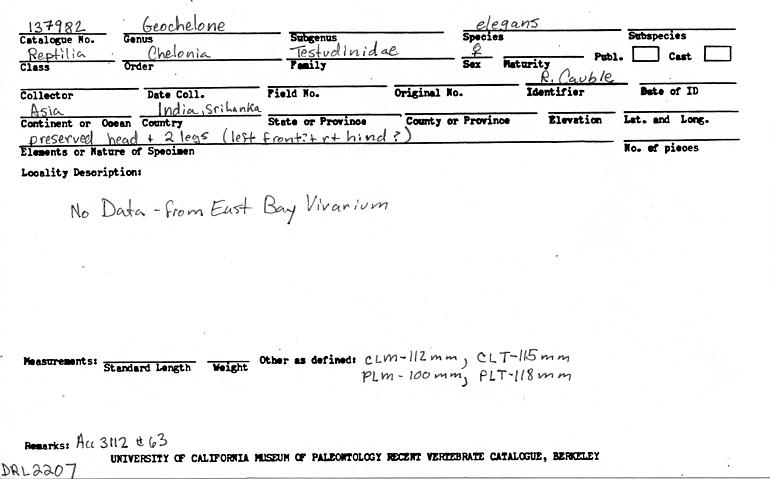 137982 Geochelone elegans
Catalogue No. Genus Subgenus Species Subspecies
Reptilia Chelonia Testudinidae ♀ Publ. Cast
Class Order Family Sex Maturity
R. Cauble
Collector Date Coll. Field No. Original No. Identifier Date of ID
Asia India, Sri Lanka
Continent or Ocean Country State or Province County or Province Elevation Lat. and Long.
preserved head + 2 legs (left front + rt hind?)
Elements or Nature of Specimen No. of pieces
Locality Description:
No Data - from East Bay Vivarium
Measurements: Other as defined: CLM-112mm, CLT-115mm
Standard Length Weight PLM-100mm, PLT-118mm
Remarks: Acc 3112 # 63
UNIVERSITY OF CALIFORNIA MUSEUM OF PALEONTOLOGY RECENT VERTEBRATE CATALOGUE, BERKELEY
DRL2207